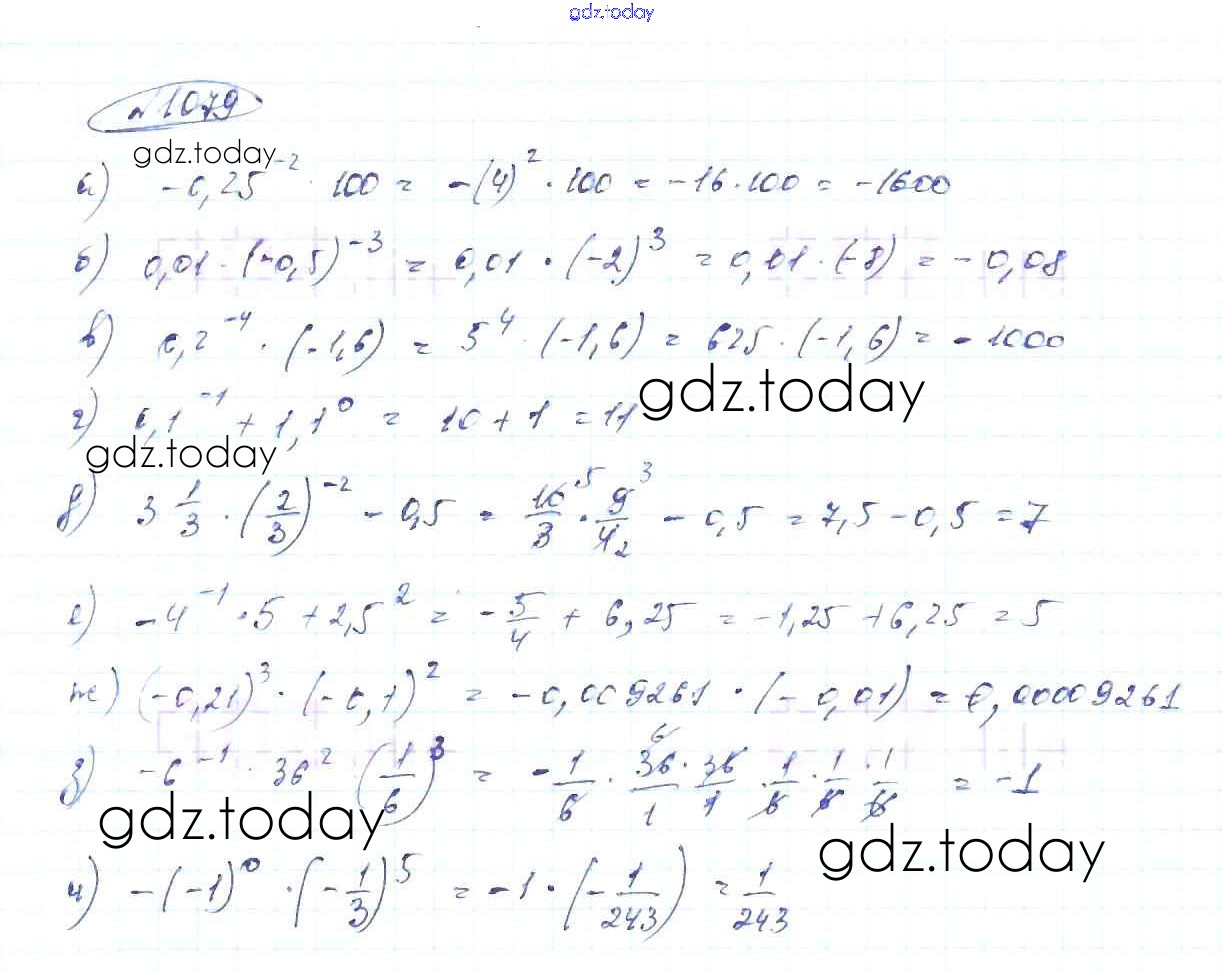 gdz.today
№1079
gdz.today
а) -0,25^{-2} · 100 = -(4)^2 · 100 = -16·100 = -1600
б) 0,01 · (-0,5)^{-3} = 0,01 · (-2)^3 = 0,01 · (-8) = -0,08
в) 0,2^{-4} · (-1,6) = 5^4 · (-1,6) = 625 · (-1,6) = -1000
gdz.today
г) 0,1^{-1} + 1,1^0 = 10 + 1 = 11
gdz.today
д) 3 1/3 · (2/3)^{-2} - 0,5 = 10/3 ^5 · 9/4 ^3 _2 - 0,5 = 7,5 - 0,5 = 7
е) -4^{-1} · 5 + 2,5^2 = -5/4 + 6,25 = -1,25 + 6,25 = 5
ж) (-0,21)^3 · (-0,1)^2 = -0,009261 · (-0,01) = 0,00009261
з) -6^{-1} · 36^2 · (1/6)^3 = -1/6 · 36/1 ^6 · 36/1 · 1/6 · 1/6 · 1/6 = -1
gdz.today
gdz.today
и) -(-1)^0 · (-1/3)^5 = -1 · (-1/243) = 1/243